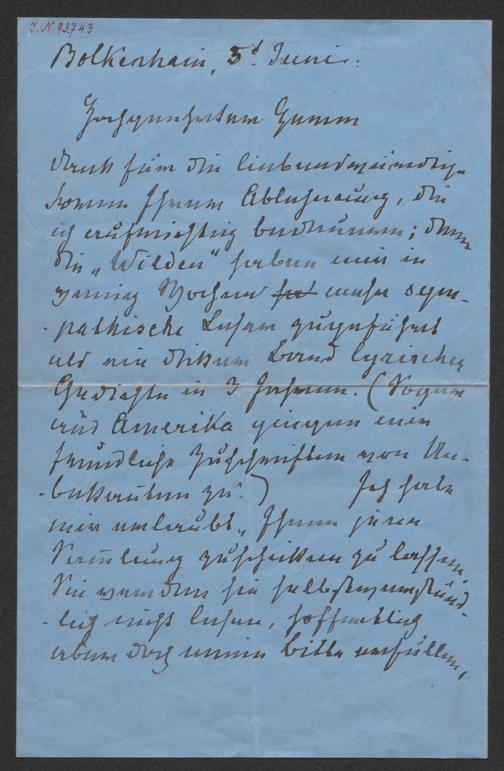 J. N. 93743
Bolkenhain, 5t Juni.
Hochgeehrter Herr
Dank für die liebenswürdige
Form Ihrer Ablehnung, die
ich aufrichtig bedauere; denn
die „Wilden" haben mir in
wenig Wochen hat mehr sym-
-pathische Leser zugeführt
als ein dicker Band lyrischer
Gedichte in 3 Jahren. (Sogar
aus Amerika gingen mir
freundliche Zuschriften von Un-
-bekannten zu.) Ich habe
mir erlaubt, Ihnen jene
Sammlung zuschicken zu lassen.
Sie werden sie selbstverständ-
-lich nicht lesen, hoffentlich
aber doch meine Bitte erfüllen,